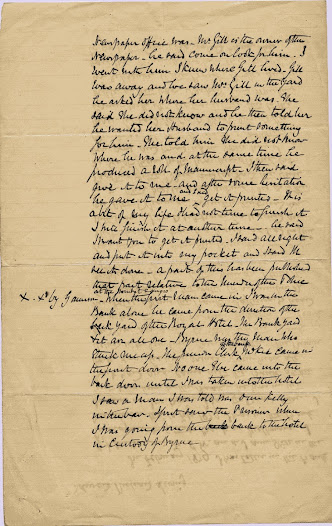 Newspaper office was. Mr Gill is the owner of the
Newspaper – he said come on look for him. I
went with him I knew where Gill lived. Gill
was away and we saw Mrs Gill in the yard
he asked her where her husband was. She
said she did not know and he then told her
he wanted her husband to print something
for him. She told him she did not know
where he was and at the same time he
produced a roll of manuscript. I then said
give it to me – and after some hesitation
he gave it to me and said get it printed – It is
a bit of my life I had not time to finish it
I will finish it at another time – he said
I want you to get it printed. I said all right
and put it into my pocket and said I'd
see it done – a part of this has been published
that part relative to the murder of the Police
at the Wombat Ranges
x. xd by Gaunson – When the first man came in I was in the
Bank alone he came from the direction of the
back yard of the Royal Hotel. The Bank yard
are all one. Byrne was the man who
stuck me up. The Junior Clerk Mackie came in
the front door. No one else came into the
back door until I was taken into the hotel
I saw a man I was told was Dan Kelly
in the bar. I first saw the Prisoner when
I was going from the bank to the hotel
in Custody of Byrne